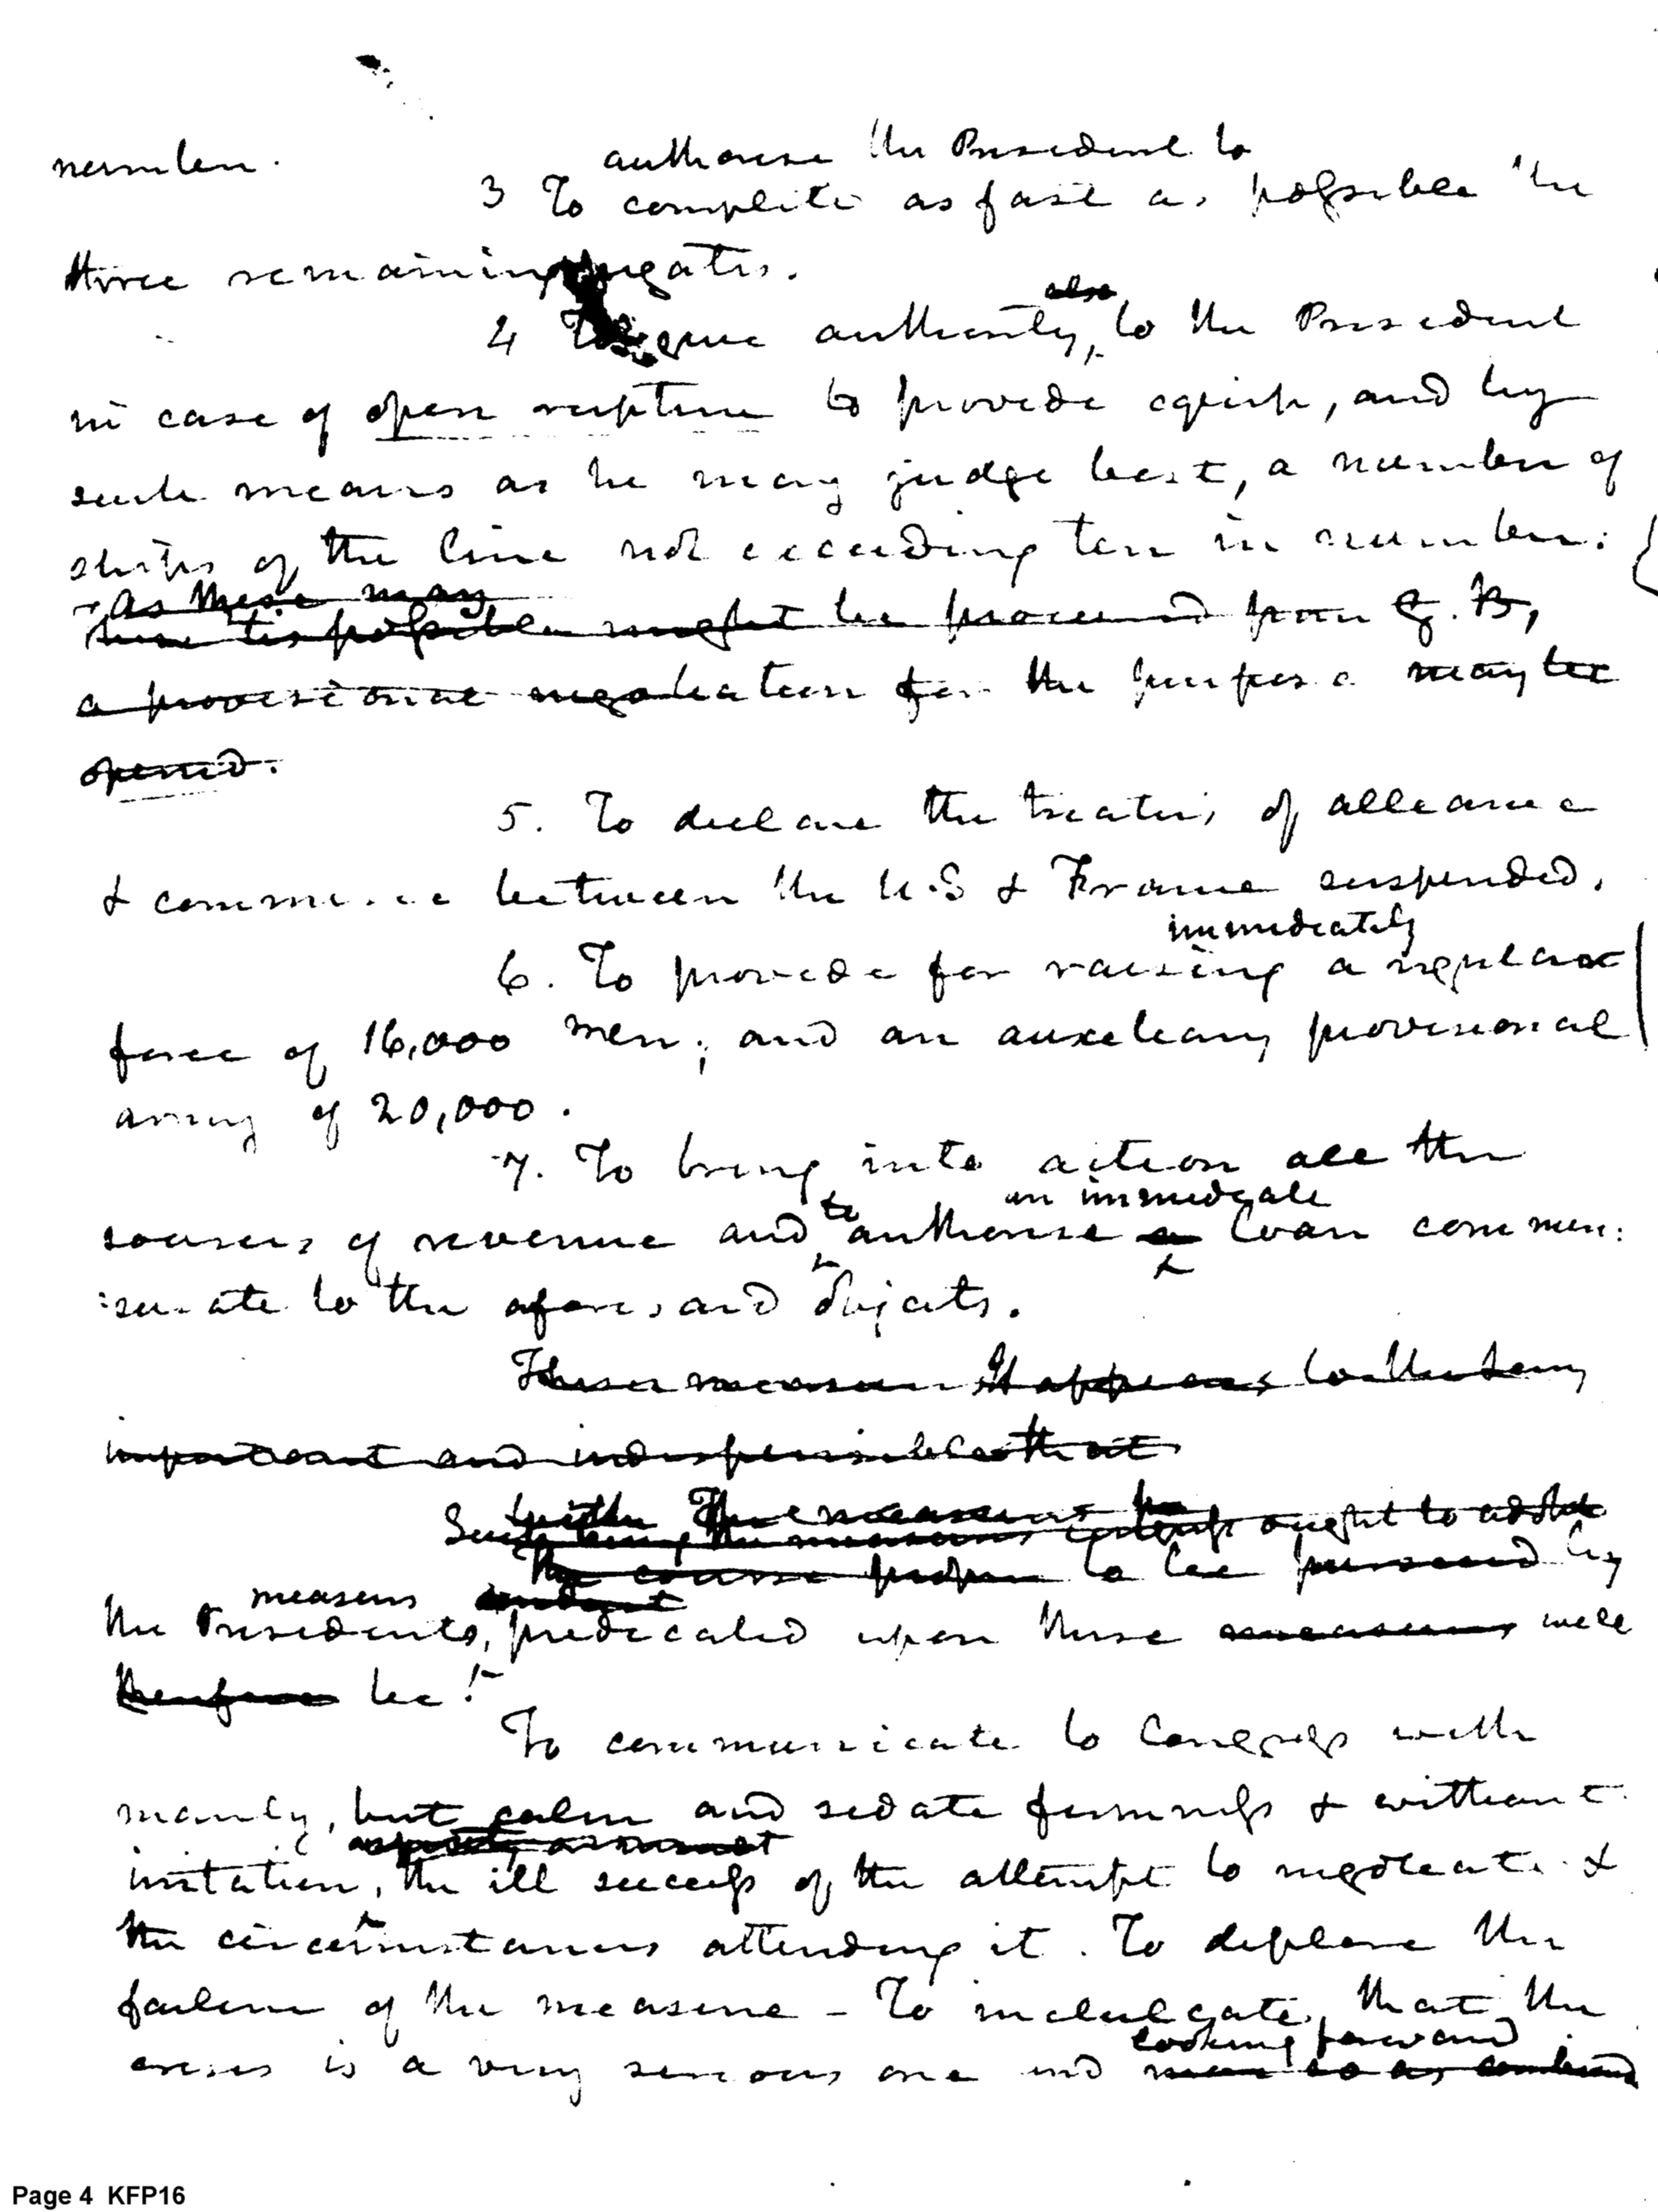 number.
authorise the President to
3 To complete as fast as possible the
three remaining frigates.
also
4 To give authority, to the President
in case of open rupture to provide equip, and by
such means as he may judge best, a number of
ships of the line not exceeding ten in number:
As these may
tis possible might be procured from G. B,
a provisional negotiation for the purpose may be
opened.
5. To declare the treaties of alleance
& commerce between the U.S & France suspended.
immediately
6. To provide for raising a regular
force of 16,000 men; and an auxeleary provisional
army of 20,000.
7. To bring into action all the
to an immediate
sources of revenue and authorise a loan commen:
:surate to the aforesaid objects.
These measures It appears to the Secy
important and indispensible that
with The measures
Such being the measures ought to adopt
The course proper to be pursued by
measures conduct
the Presidents, predecated upon these measures will
therefore be!
To communicate to Congress with
manly, but calm and sedate firmness & without
irritation, the ill success of the attempt to negotiate &
the circumstances attending it. To deplore the
failure of the measure - To inculcate, that the
looking forward
crisis is a very serious one and may so as combined
Page 4 KFP16